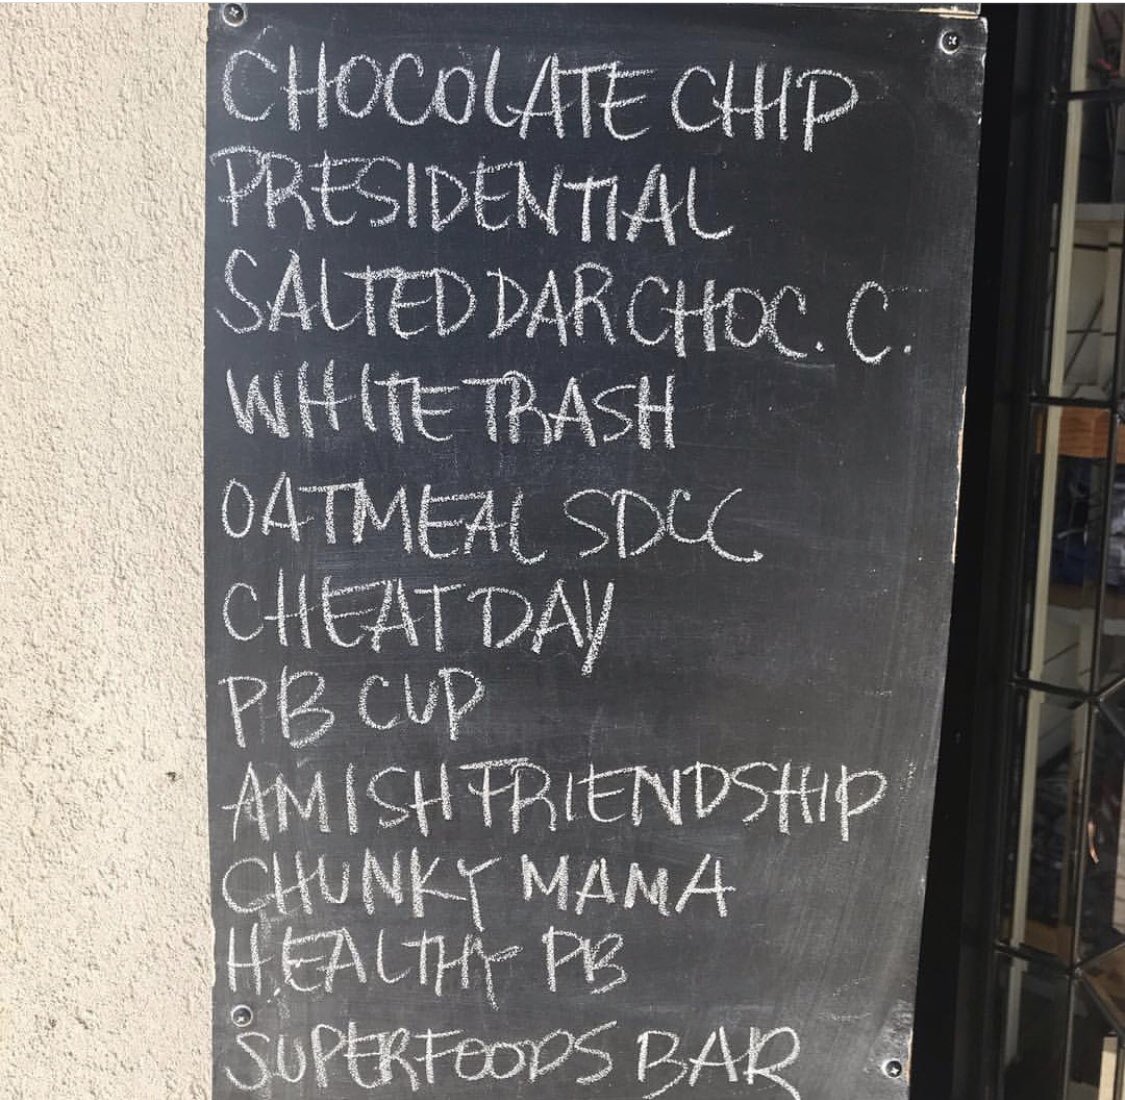 CHOCOLATE CHIP
PRESIDENTIAL
SALTED DAR CHOC. C.
WHITE TRASH
OATMEAL SDCC
CHEAT DAY
PB CUP
AMISH FRIENDSHIP
CHUNKY MAMA
HEALTHY PB
SUPERFOODS BAR